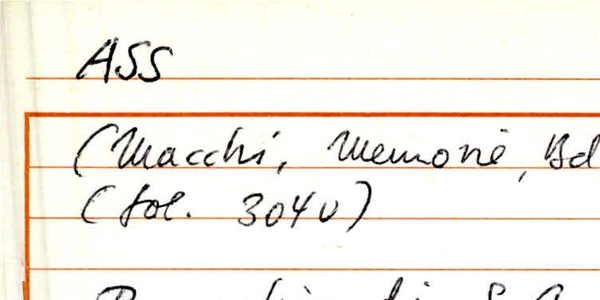 ASS
(Macchi, Memorie, Bd
(fol. 304v)